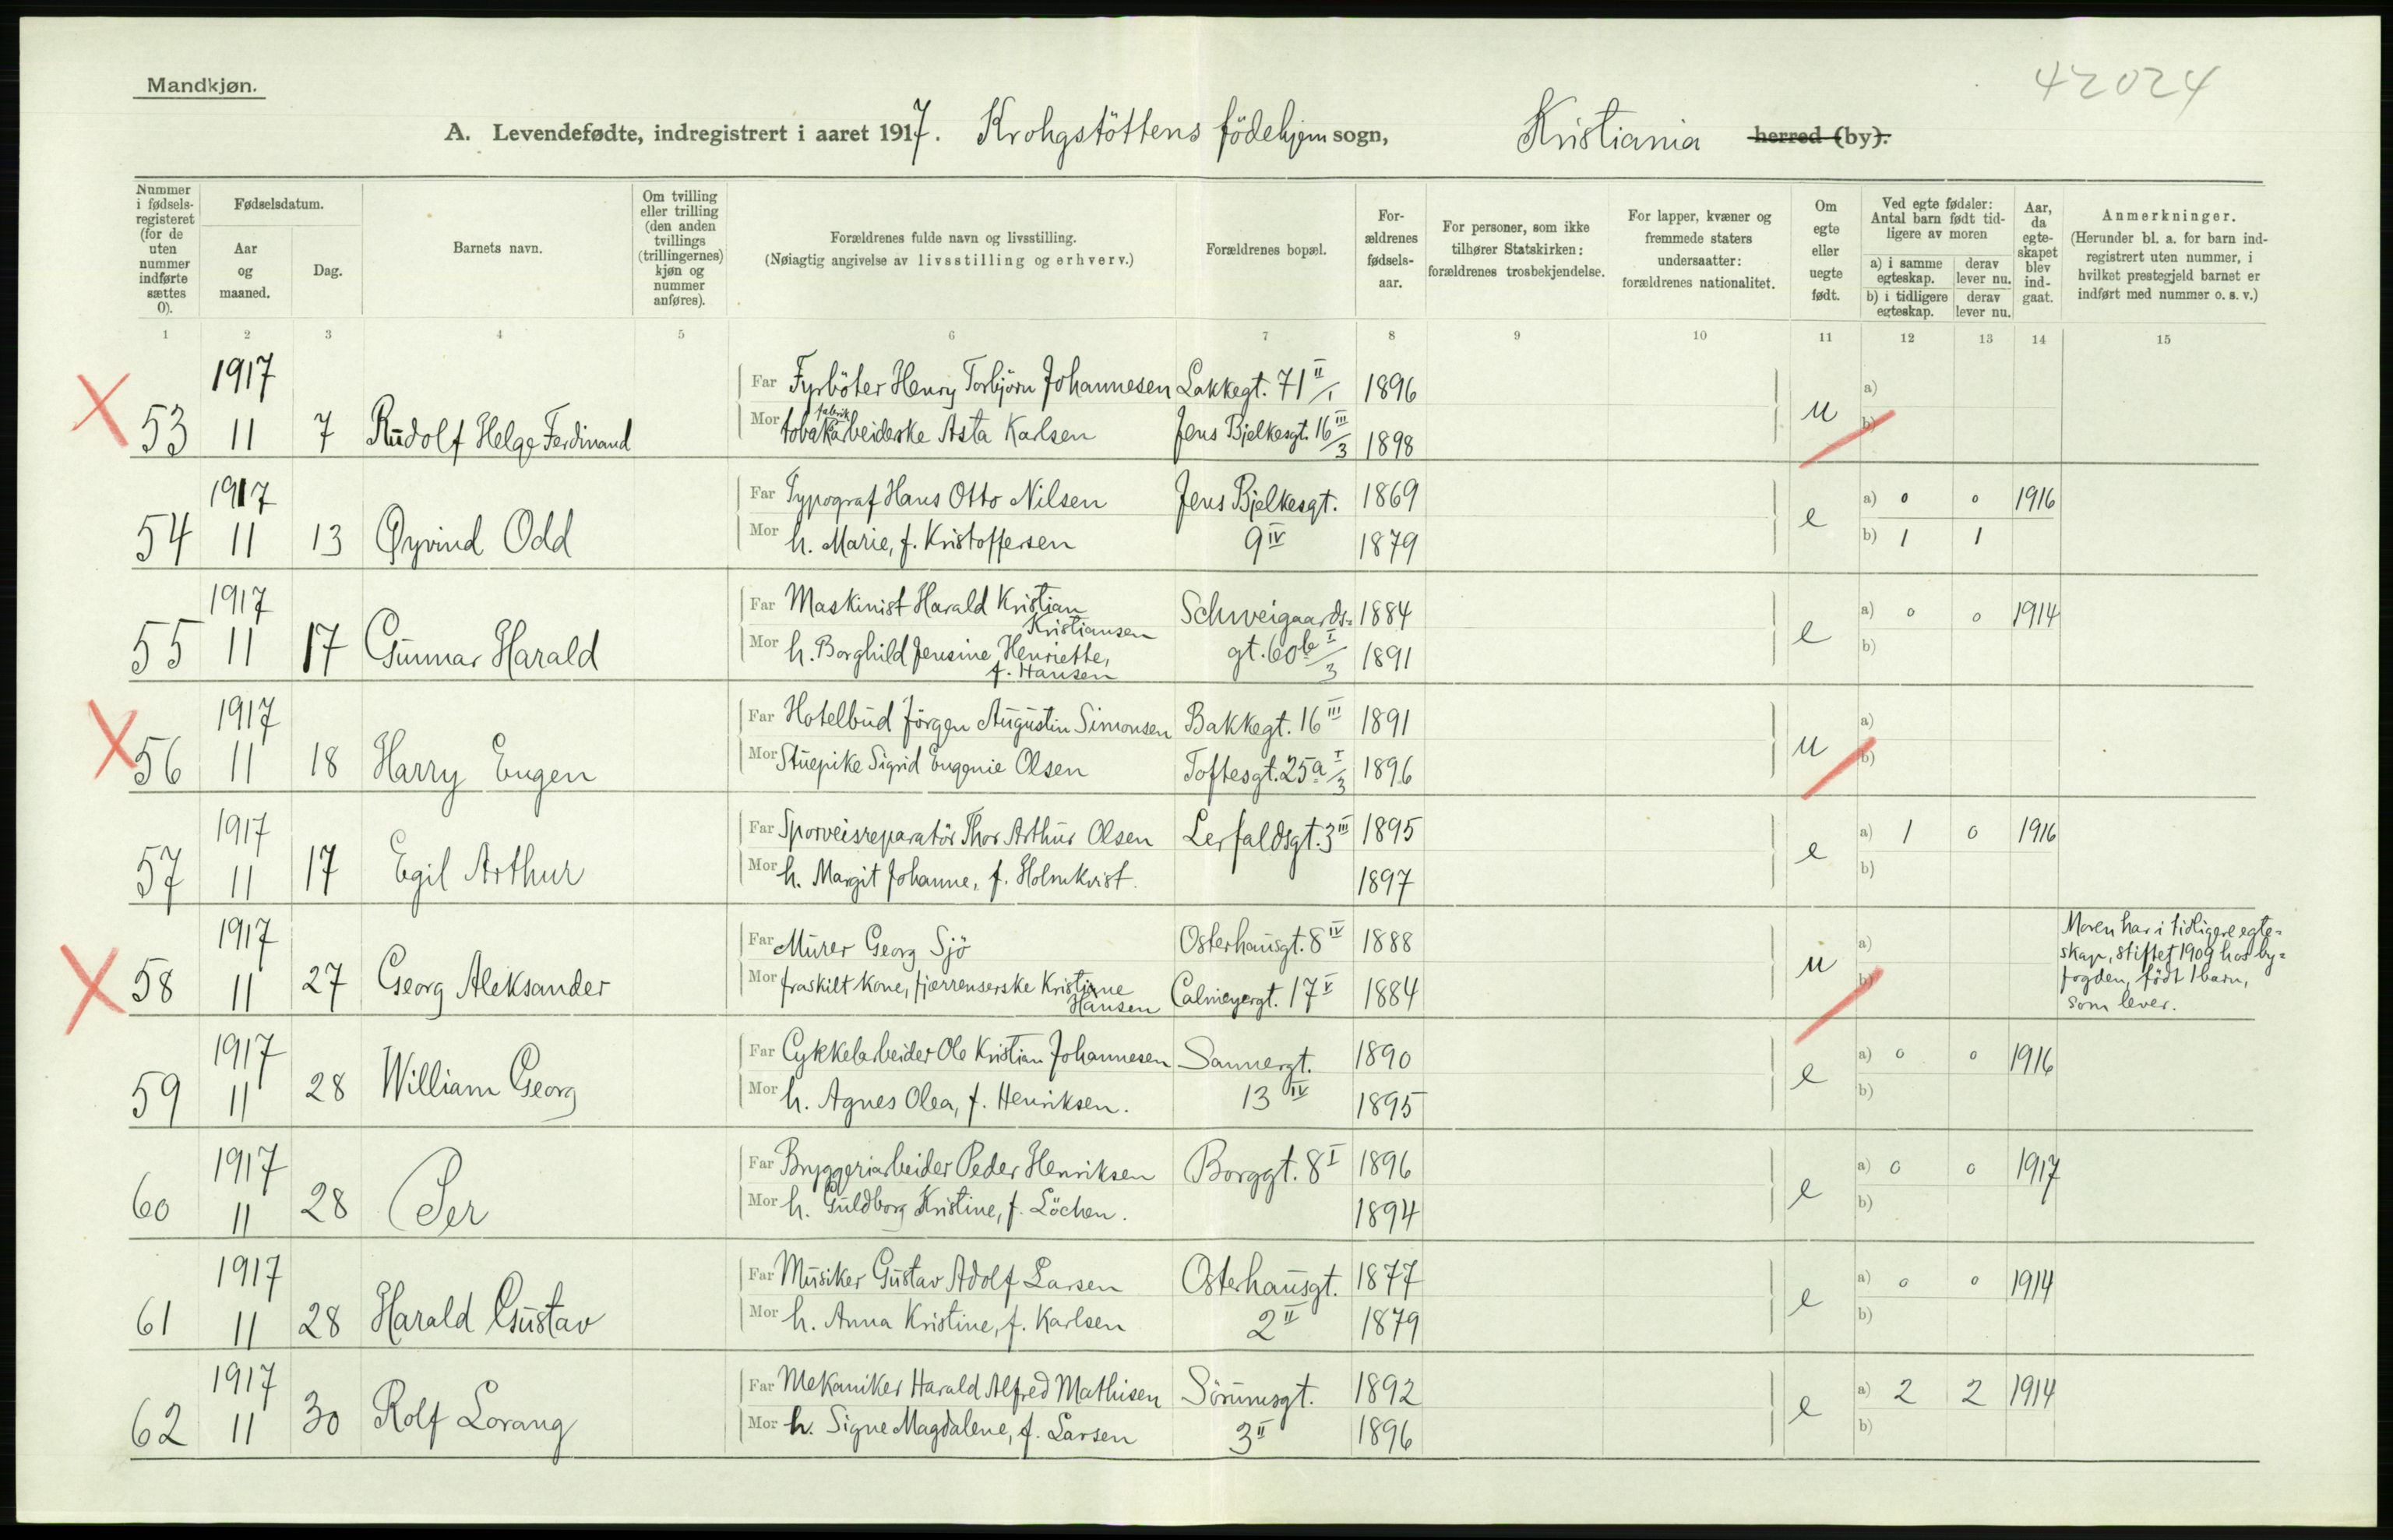 Mandkjøn.
42024
A. Levendefødte, indregistrert i aaret 1917. Krohgstöttens födehjem sogn, Kristiania herred (by).
Nummer i fødsels-registeret (for de uten nummer indførte sættes 0).
Fødselsdatum.
Aar og maaned.
Dag.
Barnets navn.
Om tvilling eller trilling (den anden tvillings (trillingernes) kjøn og nummer anføres).
Forældrenes fulde navn og livsstilling.
(Nøiagtig angivelse av livsstilling og erhverv.)
Forældrenes bopæl.
For-ældrenes fødsels-aar.
For personer, som ikke tilhører Statskirken: forældrenes trosbekjendelse.
For lapper, kvæner og fremmede staters undersaatter: forældrenes nationalitet.
Om egte eller uegte født.
Ved egte fødsler: Antal barn født tid-ligere av moren
a) i samme egteskap. derav lever nu.
b) i tidligere egteskap. derav lever nu.
Aar, da egte-skapet blev ind-gaat.
Anmerkninger.
(Herunder bl. a. for barn ind-registrert uten nummer, i hvilket prestegjeld barnet er indført med nummer o. s. v.)
1 2 3 4 5 6 7 8 9 10 11 12 13 14 15
1917 Far Fyrböter Henry Torbjörn Johannesen Lakkegt. 71 II/1 1896 a)
53 11 7 Rudolf Helge Ferdinand Mor tobakfabrikarbeiderske Asta Karlsen Jens Bjelkesgt. 16 III/3 1898 u b)
1917 Far Typograf Hans Otto Nilsen Jens Bjelkesgt. 1869 a) 0 0 1916
54 11 13 Øyvind Odd Mor h. Marie, f. Kristoffersen 9 IV 1879 e b) 1 1
1917 Far Maskinist Harald Kristian Kristiansen Schweigaards- 1884 a) 0 0 1914
55 11 17 Gunnar Harald Mor h. Borghild Jensine Henriette, f. Hansen gt. 60b I/3 1891 e b)
1917 Far Hotelbud Jörgen Augustin Simonsen Bakkegt. 16 III 1891 a)
56 11 18 Harry Eugen Mor Stuepike Sigrid Eugenie Olsen Toftesgt. 25a I/3 1896 u b)
1917 Far Sporveisreparatör Thor Arthur Olsen Lerfaldsgt. 3 III 1895 a) 1 0 1916
57 11 17 Egil Arthur Mor h. Margit Johanne, f. Holmkvist. 1897 e b)
1917 Far Murer Georg Sjö Osterhausgt. 8 IV 1888 a)
58 11 27 Georg Aleksander Mor fraskilt kone, fjærrenserske Kristine Hansen Calmeyergt. 17 V 1884 u b)
Moren har i tidligere egte-
skap, stiftet 1909 hos by-
fogden, födt 1 barn,
som lever.
1917 Far Cykkelarbeider Ole Kristian Johannesen Sannergt. 1890 a) 0 0 1916
59 11 28 William Georg Mor h. Agnes Olea, f. Henriksen. 13 IV 1895 e b)
1917 Far Bryggeriarbeider Peder Henriksen Borggt. 8 I 1896 a) 0 0 1917
60 11 28 Per Mor h. Guldborg Kristine, f. Löchen. 1894 e b)
1917 Far Musiker Gustav Adolf Larsen Osterhausgt. 1877 a) 0 0 1914
61 11 28 Harald Gustav Mor h. Anna Kristine, f. Karlsen 2 II 1879 e b)
1917 Far Mekaniker Harald Alfred Mathisen Sörumsgt. 1892 a) 2 2 1914
62 11 30 Rolf Lorang Mor h. Signe Magdalene, f. Larsen 3 II 1896 e b)